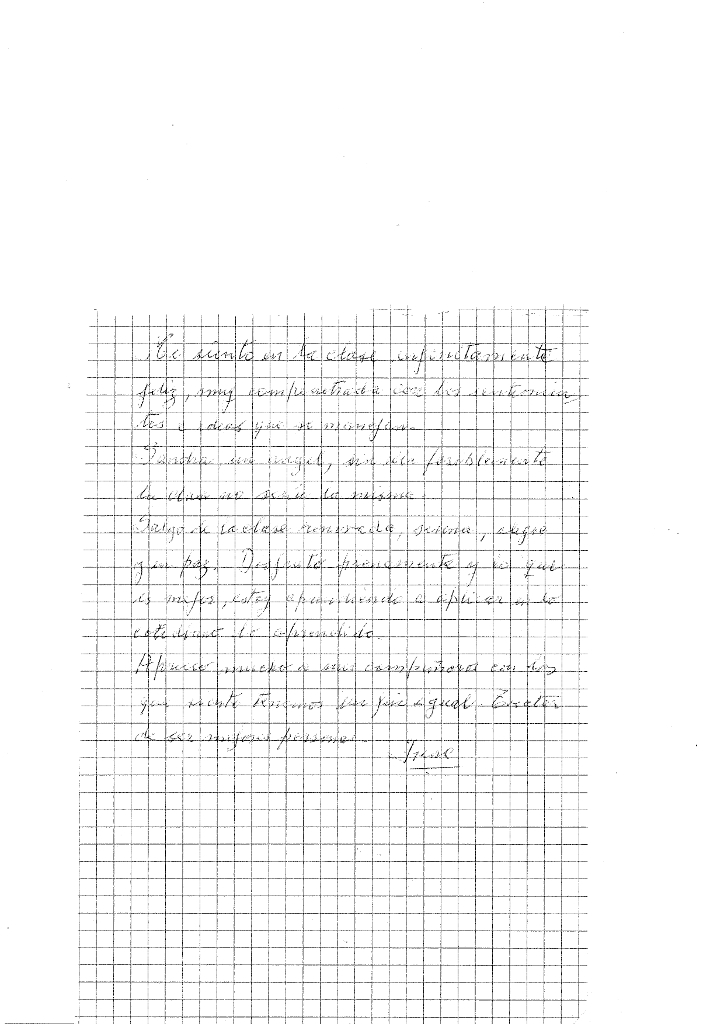 Me siento en la clase infinitamente
feliz, muy compenetrada con los sentimien
tos e ideas que se manejan.
Sandra un angel, sin ella posiblemente
la clase no sería lo mismo.
Salgo de la clase renovada, serena, alegre
y en paz. Disfruto plenamente y lo que
es mejor, estoy aprendiendo a aplicar en lo
cotidiano lo aprendido.
Aprecio mucho a mis compañeros con los
que siento tenemos un fin igual. Tratar
de ser mejores personas.
Irene